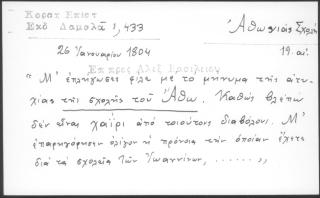 Κοραή Επιστ
Εκδ Δαμαλᾶ 1,433
Ἀθωνιὰς Σχολή
26 Ιανουαρίου 1804
19. αἰ.
Επ προς Αλεξ Βασιλείου
"Μ' ἐπλήγωσες φίλε με το μήνυμα της ἀτυ-
χίας της σχολῆς του Ἄθω. Καθώς βλέπω
δεν εἶναι χαΐρι ἀπό τοιούτους διαβόλους. Μ'
ἐπαρηγόρησεν ὀλίγον ἡ πρόνοια την ὁποίαν ἔχετε
διά τα σχολεῖα Τῶν Ἰωαννίνων, .......,